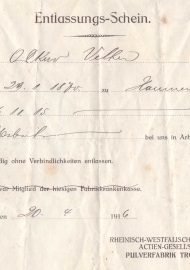 Entlassungs-Schein.
29. 1. 1870 zu
11. 15
bei uns in Arb
dig ohne Verbindlichkeiten entlassen.
war Mitglied der hiesigen Fabrikkrankenkasse.
en 20. 4 1916
RHEINISCH-WESTFÄLISCH
ACTIEN-GESELL
PULVERFABRIK TRO